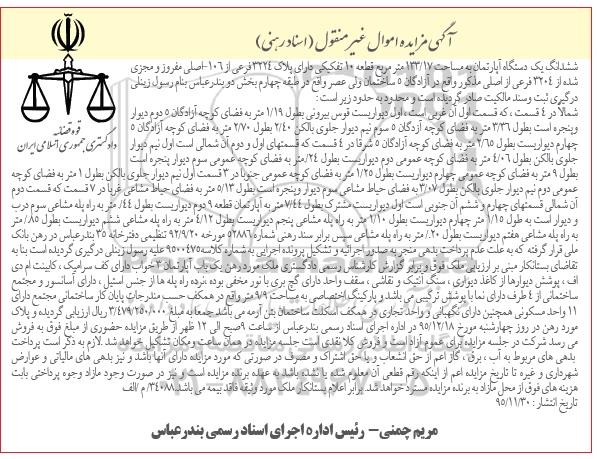 آگهی مزایده اموال غیر منقول (اسناد رهنی)
قوه قضائیه
دادگستری جمهوری اسلامی ایران
ششدانگ یک دستگاه آپارتمان به مساحت ۱۳۳/۱۷ متر مربع قطعه ۱۰ تفکیکی دارای پلاک ۳۲۲۴ فرعی از ۱۰۶-اصلی مفروز و مجزی
شده از ۳۲۰۴ فرعی از اصلی مذکور واقع در آزادگان ۵ ساختمان ولی عصر واقع در طبقه چهارم بخش دو بندرعباس بنام رسول زینلی
درگیری ثبت وسند مالکیت صادر گردیده است و محدود به حدود زیر است :
شمالا در ۴ قسمت ، که قسمت اول آن غربی است ، اول دیواریست قوس بیرونی بطول ۱/۱۹ متر به فضای کوچه آزادگان ۵ دوم دیوار
وپنجره است بطول ۳/۳۶ متر به فضای کوچه آزدگان ۵ سوم نیم دیوار جلوی بالکن ۲/۴۰ بطول ۲/۷۰ متر به فضای کوچه آزادگان ۵
چهارم دیواریست بطول ۲/۶۵ متر به فضای کوچه آزادگان ۵ شرقا در ۴ قسمت که قسمتهای اول و دوم آن شمالی است اول نیم دیوار
جلوی بالکن بطول ۴/۰۶ متر به فضای کوچه عمومی دوم دیواریست بطول ۲۴/.متر به فضای کوچه عمومی سوم دیوار پنجره است
بطول ۹ متر به فضای کوچه عمومی چهارم دیواریست بطول ۱/۲۵ متر به فضای کوچه عمومی جنوبا در ۳ قسمت اول نیم دیوار جلوی بالکن بطول ۱ متر به فضای کوچه
عمومی دوم نیم دیوار جلوی بالکن بطول ۳/۰۷ به فضای حیاط مشاعی سوم دیوار وپنجره است بطول ۵/۱۳ متر به فضای حیاط مشاعی غربا در ۷ قسمت که قسمت دوم
آن شمالی قسمتهای چهارم و ششم آن جنوبی است اول دیواریست مشترک بطول ۷/۴۴ متر به آپارتمان قطعه ۹ دوم دیواریست بطول ۴۴/. متر به راه پله مشاعی سوم درب
و دیوار است به طول ۱/۱۵ متر چهارم دیواریست بطول ۱/۱۰ متر به راه پله مشاعی پنجم دیواریست بطول ۴/۱۲ متر به راه پله مشاعی ششم دیواریست بطول ۸۵/. متر
به راه پله مشاعی هفتم دیواریست بطول ۲۰/. متر به راه پله مشاعی مبنی برابر سند رهنی شماره ۵۲۸۸۶ مورخه ۹۲/۹/۲۰ تنظیمی دفترخانه ۳۵ بندرعباس در رهن بانک
ملی قرار گرفته که به علت عدم پرداخت بدهی منجر به صدور اجرائیه و تشکیل پرونده اجرایی به شماره کلاسه ۹۵۰۰۴۷۵ علیه رسول زینلی درگیری گردیده است بنا به
تقاضای بستانکار مبنی بر ارزیابی ملک فوق و برابر گزارش کارشناس رسمی دادگستری ملک مورد رهن یک باب آپارتمان ۳ خواب دارای کف سرامیک ، کابینت ام دی
اف ، پوشش دیوارها از کاغذ دیواری ، سنگ آنتیک و نقاشی ، سقف واحد دارای گچ بری با نور مخفی بوده ،نرده راه پله ها از جنس استیل ، دارای آسانسور و مجتمع
ساختمانی از ۴ طرف دارای نما با پوشش ترکیبی می باشد و پارکینگ اختصاصی به مساحت ۹/۹ متر واقع در همکف حسب مندرجات پایان کار ساختمانی مجتمع دارای
۱۱ واحد مسکونی همچنین دارای نگهبانی و واحد تجاری در همکف است ساختمان بتن آرمه می باشد جمعا به مبلغ ۳/۴۷۹/۲۵۰/۰۰۰ ریال ارزیابی گردیده و پلاک
مورد رهن در روز چهارشنبه مورخ ۹۵/۱۲/۱۸ در اداره اجرای اسناد رسمی بندرعباس از ساعت ۹ صبح الی ۱۲ ظهر از طریق مزایده حضوری از مبلغ فوق به فروش
می رسد شرکت در جلسه مزایده برای عموم آزاد است و فروش کلا نقدی است جلسه مزایده در همان ساعت ومکان تشکیل خواهد شد. لازم به ذکر است پرداخت
بدهی های مربوط به آب ، برق ، گاز اعم از حق انشعاب و یا حق اشتراک و مصرف در صورتی که مورد مزایده دارای آنها باشد و نیز بدهی های مالیاتی و عوارض
شهرداری و غیره تا تاریخ مزایده اعم از اینکه رقم قطعی آن معلوم شده یا نشده باشد به عهده برنده مزایده است و نیز در صورت وجود مازاد وجوه پرداختی بابت
هزینه های فوق از محل مازاد به برنده مزایده مسترد خواهد شد. برابر اعلام بستانکار ملک مورد وثیقه فاقد بیمه می باشد.۳۴۰۰۸/م /الف
تاریخ انتشار : ۹۵/۱۱/۳۰
مریم چمنی- رئیس اداره اجرای اسناد رسمی بندرعباس